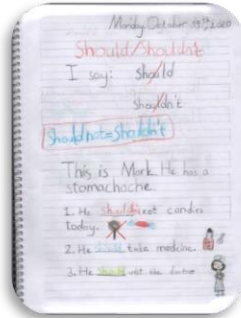 Monday October 19th 2020
Should/Shouldn't
I say: should
shouldn't
Should not = Shouldn't
This is Mark. He has a
stomachache.
1. He shouldn't eat candies
today.
2. He should take medicine.
3. He should visit the doctor